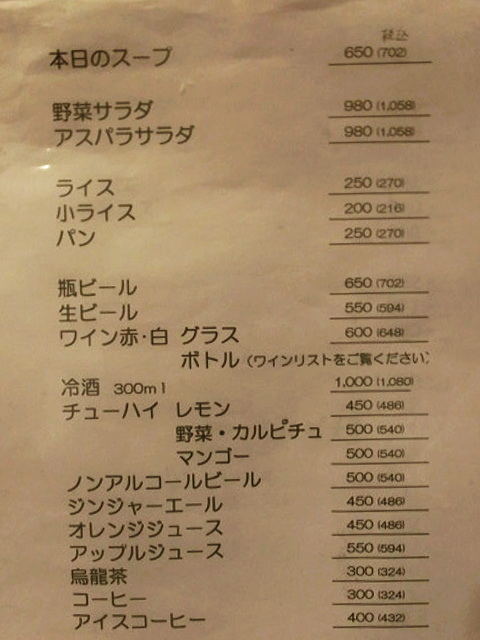 税込
本日のスープ 650 (702)
野菜サラダ 980 (1,058)
アスパラサラダ 980 (1,058)
ライス 250 (270)
小ライス 200 (216)
パン 250 (270)
瓶ビール 650 (702)
生ビール 550 (594)
ワイン赤・白 グラス 600 (648)
ボトル (ワインリストをご覧ください)
冷酒 300ml 1,000 (1,080)
チューハイ レモン 450 (486)
野菜・カルピチュ 500 (540)
マンゴー 500 (540)
ノンアルコールビール 500 (540)
ジンジャーエール 450 (486)
オレンジジュース 450 (486)
アップルジュース 550 (594)
烏龍茶 300 (324)
コーヒー 300 (324)
アイスコーヒー 400 (432)